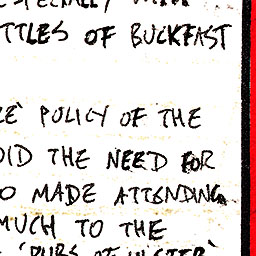 TTLES OF BUCKFAST
POLICY OF THE
OID THE NEED FOR
O MADE ATTENDING
MUCH TO THE